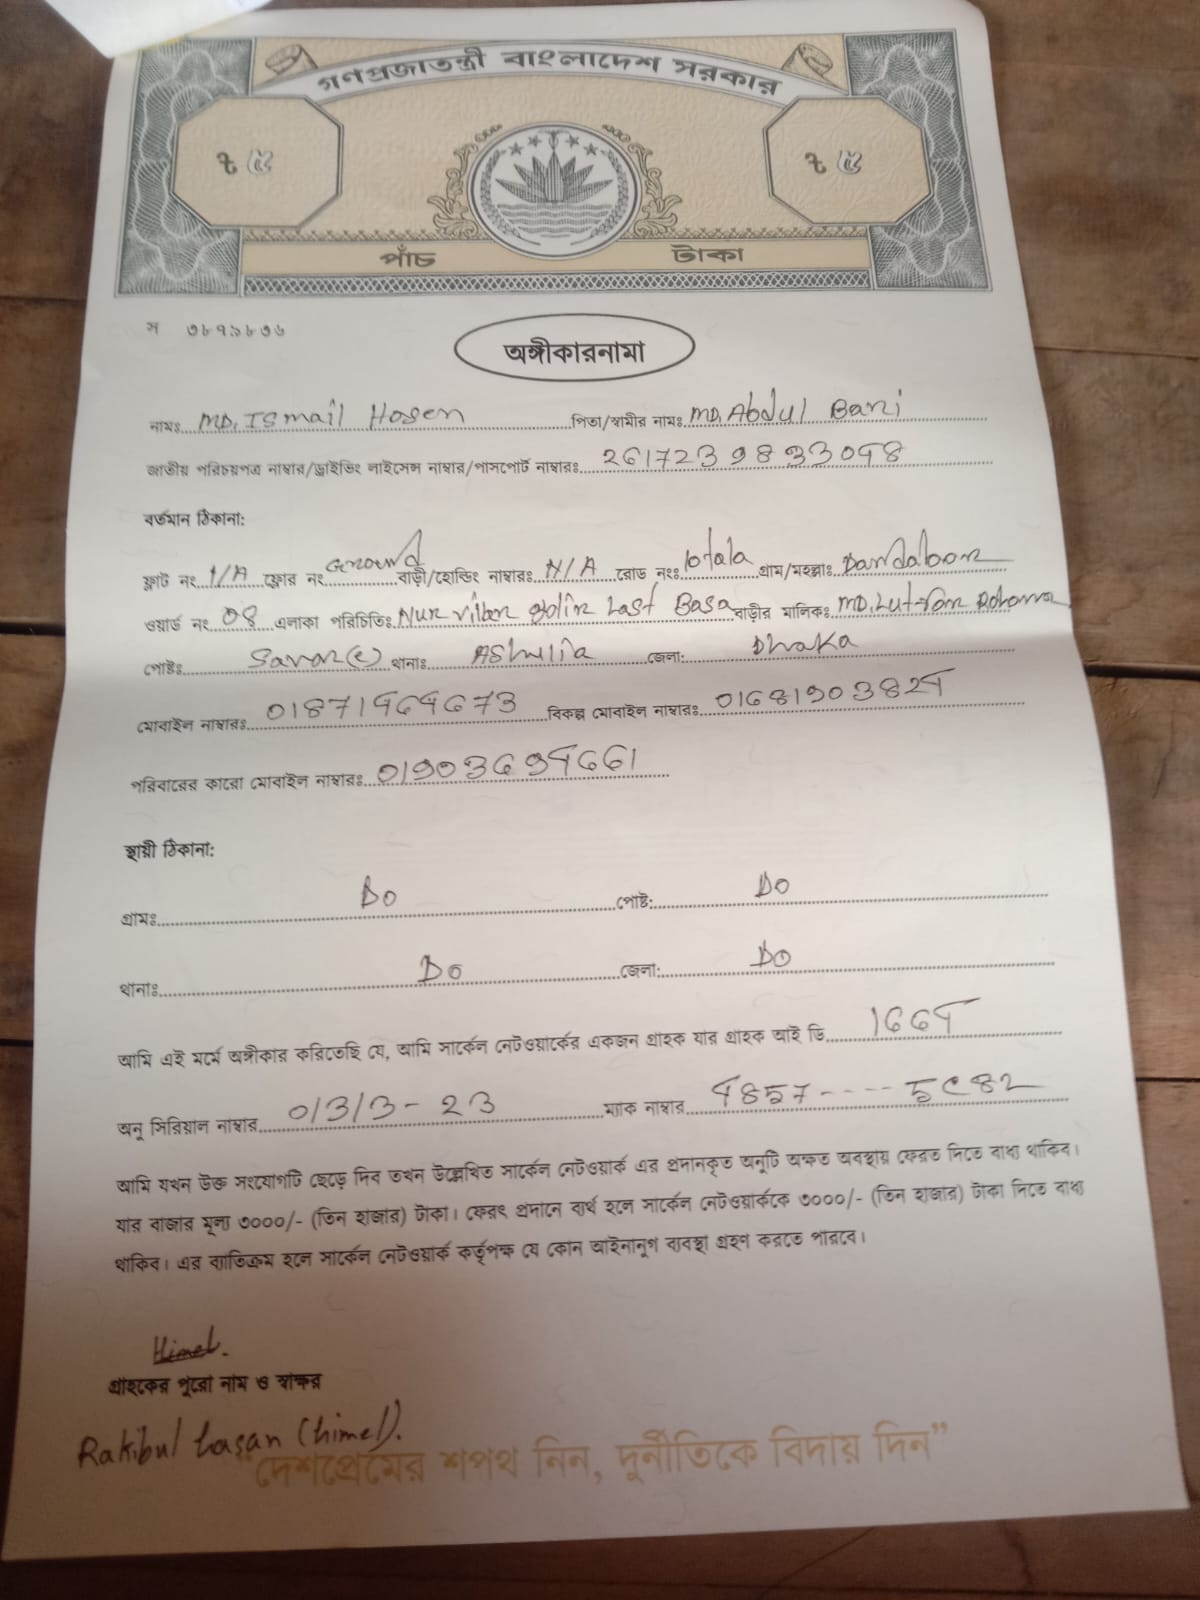 গণপ্রজাতন্ত্রী বাংলাদেশ সরকার
৳ ৫ ৳ ৫
পাঁচ টাকা
স ৩৮৭১৮৩৬
অঙ্গীকারনামা
নামঃ MD, Ismail Hosen পিতা/স্বামীর নামঃ MD, Abdul Bari
জাতীয় পরিচয়পত্র নাম্বার/ড্রাইভিং লাইসেন্স নাম্বার/পাসপোর্ট নাম্বারঃ
বর্তমান ঠিকানা:
ফ্লাট নং 1/A ফ্লোর নং Ground বাড়ী/হোল্ডিং নাম্বারঃ N/A রোড নংঃ গ্রাম/মহল্লাঃ
ওয়ার্ড নং 08 এলাকা পরিচিতিঃ Last Basa বাড়ীর মালিকঃ
পোষ্টঃ থানাঃ AShulia জেলা: Dhaka
মোবাইল নাম্বারঃ বিকল্প মোবাইল নাম্বারঃ
পরিবারের কারো মোবাইল নাম্বারঃ
স্থায়ী ঠিকানা:
গ্রামঃ Do পোষ্ট: Do
থানাঃ Do জেলা: Do
আমি এই মর্মে অঙ্গীকার করিতেছি যে, আমি সার্কেল নেটওয়ার্কের একজন গ্রাহক যার গ্রাহক আই ডি
অনু সিরিয়াল নাম্বার 0/3/3- 23 ম্যাক নাম্বার
আমি যখন উক্ত সংযোগটি ছেড়ে দিব তখন উল্লেখিত সার্কেল নেটওয়ার্ক এর প্রদানকৃত অনুটি অক্ষত অবস্থায় ফেরত দিতে বাধ্য থাকিব।
যার বাজার মূল্য ৩০০০/- (তিন হাজার) টাকা। ফেরৎ প্রদানে ব্যর্থ হলে সার্কেল নেটওয়ার্ককে ৩০০০/- (তিন হাজার) টাকা দিতে বাধ্য
থাকিব। এর ব্যাতিক্রম হলে সার্কেল নেটওয়ার্ক কর্তৃপক্ষ যে কোন আইনানুগ ব্যবস্থা গ্রহণ করতে পারবে।
Himel.
গ্রাহকের পুরো নাম ও স্বাক্ষর
Rakibul hasan (himel).
"দেশপ্রেমের শপথ নিন, দুর্নীতিকে বিদায় দিন"